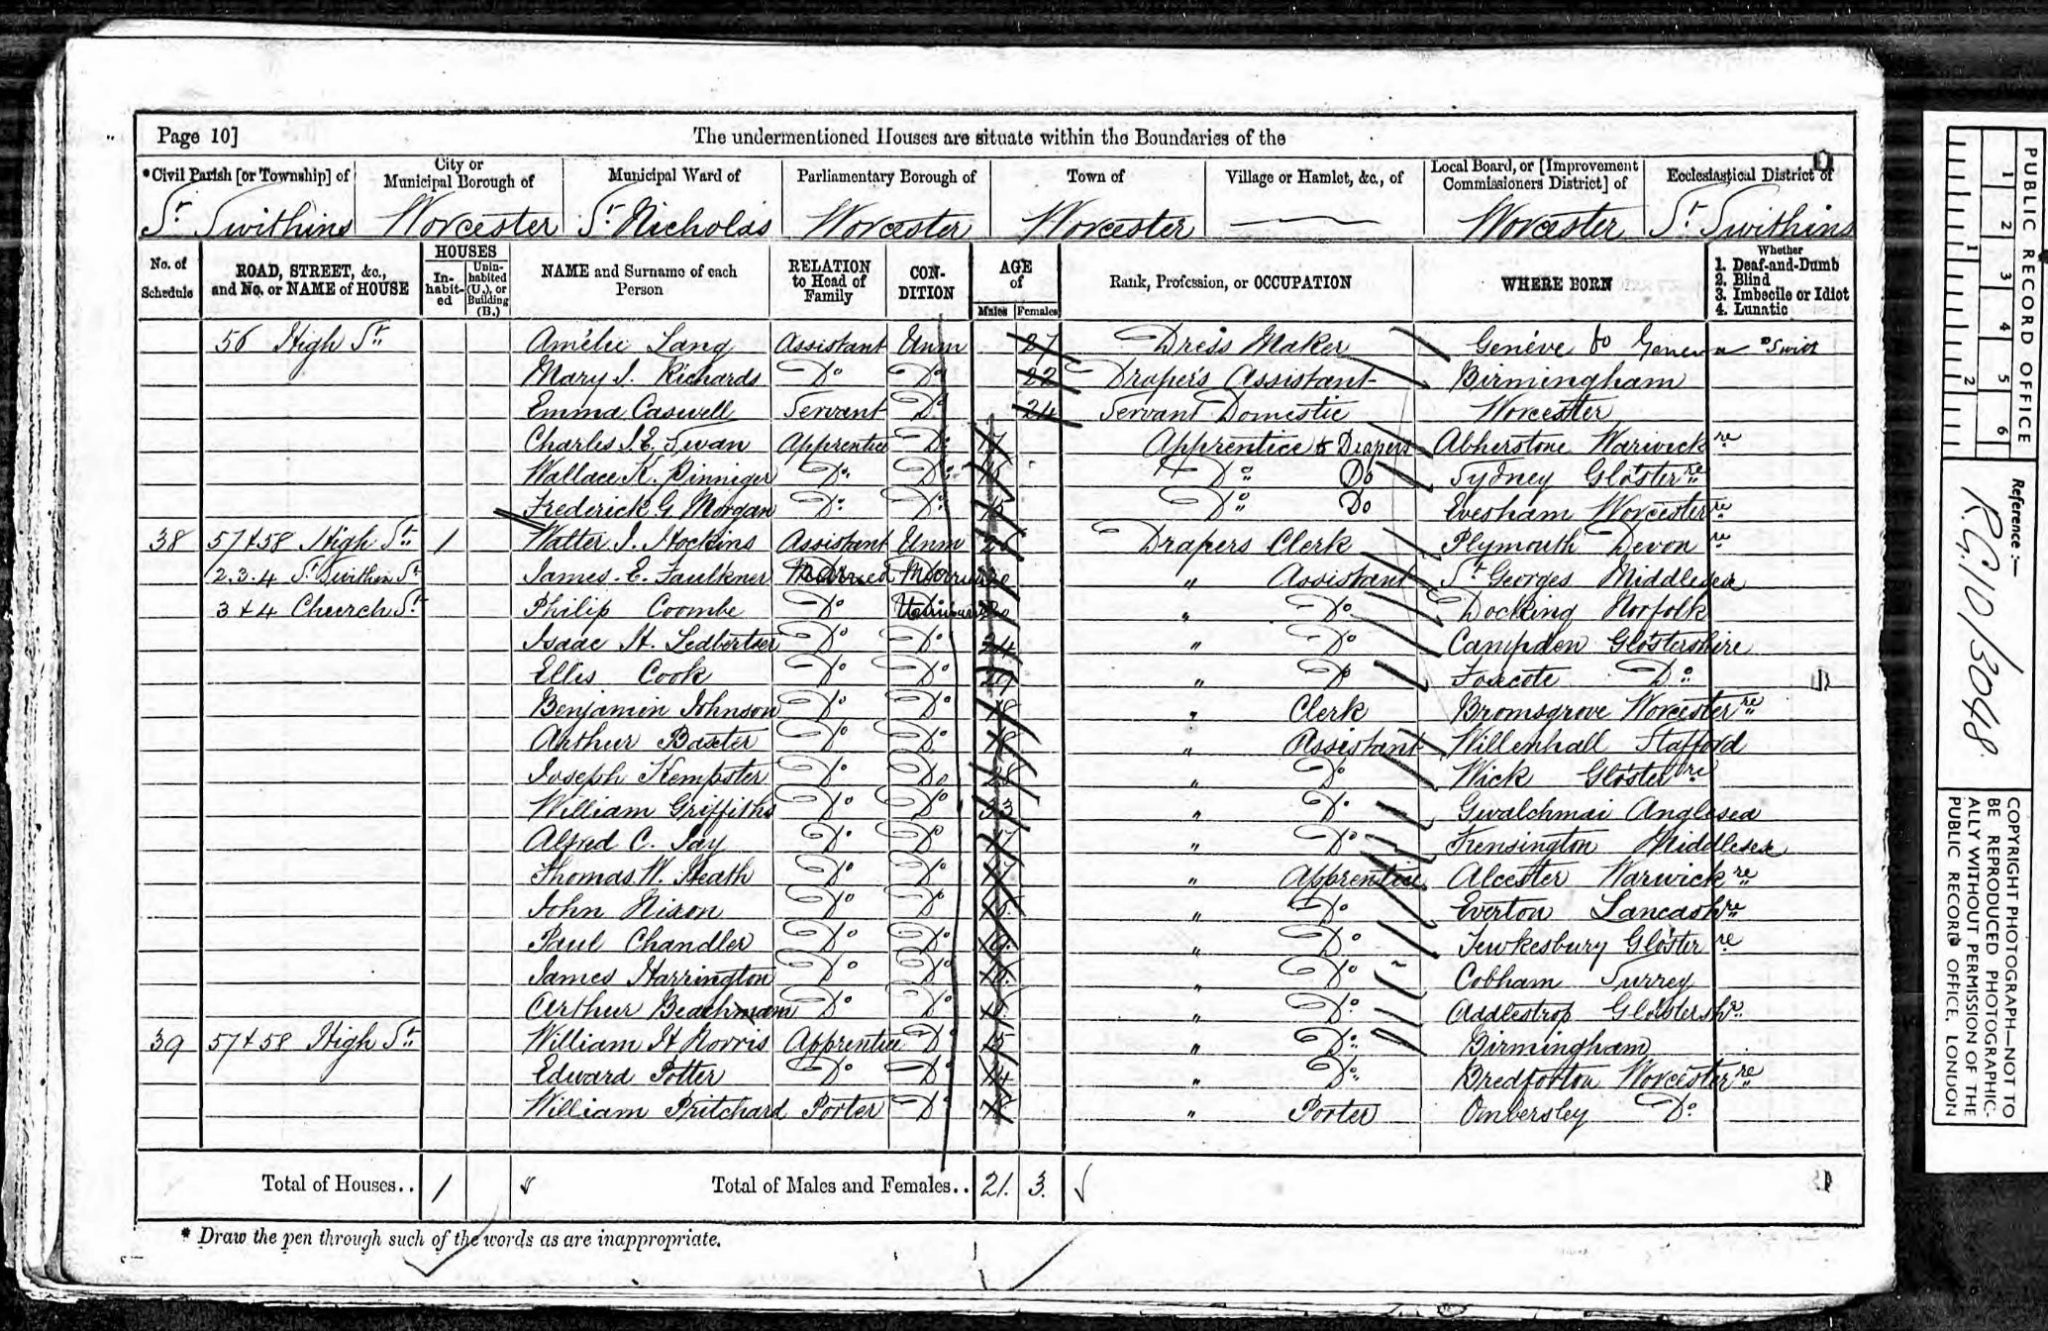 Page 10]
The undermentioned Houses are situate within the Boundaries of the
*Civil Parish [or Township] of
City or Municipal Borough of
Municipal Ward of
Parliamentary Borough of
Town of
Village or Hamlet, &c., of
Local Board, or [Improvement Commissioners District] of
Ecclesiastical District of
St. Swithins Worcester St. Nicholas Worcester Worcester Worcester St. Swithins
No. of Schedule
ROAD, STREET, &c., and No. or NAME of HOUSE
HOUSES
In-habit-ed
Unin-habited (U.), or Building (B.)
NAME and Surname of each Person
RELATION to Head of Family
CON-DITION
AGE of
Males Females
Rank, Profession, or OCCUPATION
WHERE BORN
Whether
1. Deaf-and-Dumb
2. Blind
3. Imbecile or Idiot
4. Lunatic
56 High St. Amélie Lang Assistant Unm 27 Dress Maker Genève Geneva
Mary J. Richards Do Do 22 Drapers Assistant Birmingham
Emma Caswell Servant Do 24 Servant Domestic Worcester
Charles J. E. Swan Apprentice Do 17 Apprentice to Drapers Atherstone Warwick re
Wallace K. Pinniger Do Do Do Do Sydney Gloster re
Frederick G. Morgan Do Do Do Do Evesham Worcester re
38 57 & 58 High St. 1 Walter J. Hockins Assistant Unm Drapers Clerk Plymouth Devon re
2. 3. 4 St. Swithin St. James E. Faulkner " Assistant St. Georges Middlesex
3 & 4 Church St. Philip Coombe Do " Do Docking Norfolk
Isaac H. Ledbetter Do Do 24 " Do Campden Glostershire
Ellis Cook Do Do " Do Foxcote Do
Benjamin Johnson Do Do 18 " Clerk Bromsgrove Worcester re
Arthur Baxter Do Do 18 " Assistant Willenhall Stafford
Joseph Kempster Do Do 28 " Do Wick Gloster re
William Griffiths Do Do 33 " Do Gwalchmai Anglesea
Alfred C. Jay Do Do 17 " Do Kensington Middlesex
Thomas W. Heath Do Do " Apprentice Alcester Warwick re
John Nixon Do Do " Do Everton Lancash re
Paul Chandler Do Do " Do Tewkesbury Gloster re
James Harrington Do Do " Do Cobham Surrey
Arthur Beachmam Do Do " Do Addlestrop Glostersh re
39 57 & 58 High St. William H Norris Apprentice Do 15 " Do Birmingham
Edward Potter Do Do 14 " Do Bredforton Worcester re
William Pritchard Porter Do " Porter Ombersley Do
Total of Houses.. 1 Total of Males and Females.. 21. 3.
* Draw the pen through such of the words as are inappropriate.
PUBLIC RECORD OFFICE
1 2 3 4 5 6
1 2
Reference :—
R.G. 10/3048
COPYRIGHT PHOTOGRAPH—NOT TO
BE REPRODUCED PHOTOGRAPHIC-
ALLY WITHOUT PERMISSION OF THE
PUBLIC RECORD OFFICE, LONDON